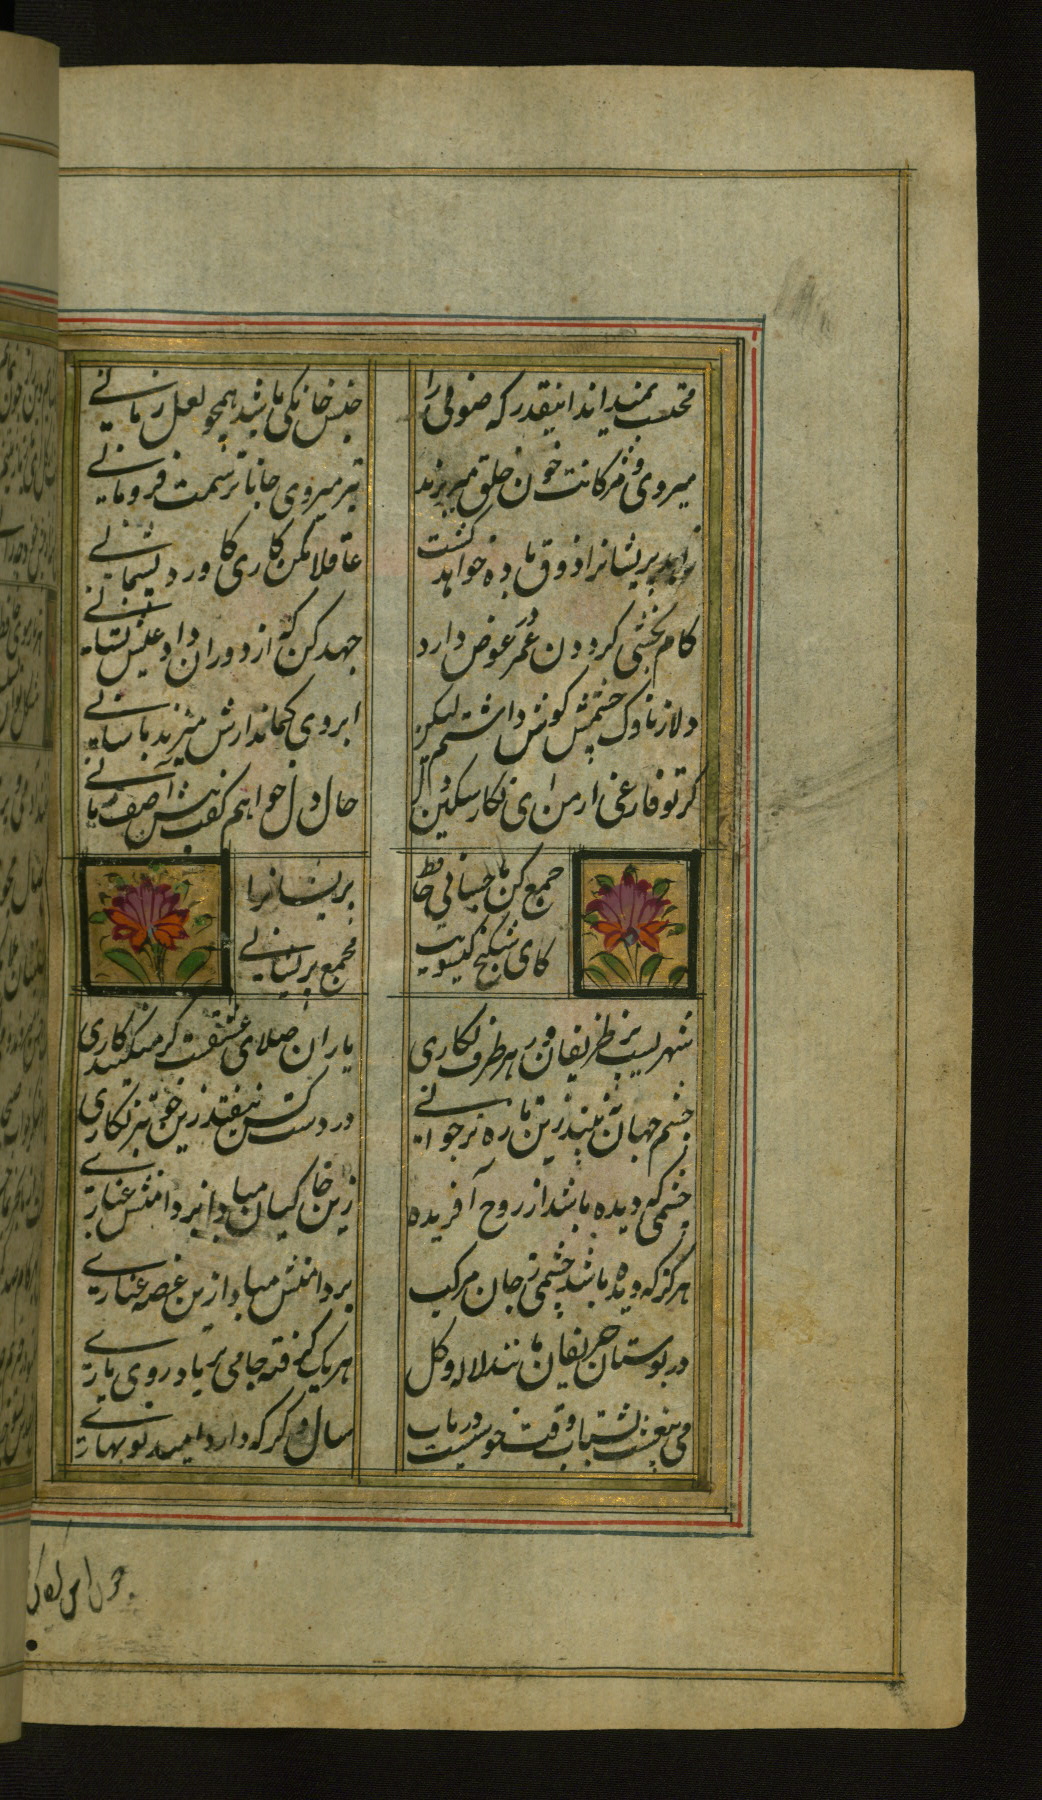 محتسب نمیداند اینقدر که صوفی را
جنس خانگی باشد همچو لعل رمانی
میروی و مژگانت خون خلق میریزند
تیز میروی جانا ترسمت فرومانی
زاهد پریشانرا ذوق باده خواهد کشت
عاقلا مکن کاری کاورد پشیمانی
کام بخشی کردون عمر در عوض دارد
جهد کن که از دوران داد عیش بستانی
دل ز ناوک چشمش کوش داشتم لیکن
ابروی کماندارش میزند به پیشانی
کر تو فارغی از من ای نکار سنکین دل
حال دل خواهم کفت پیش آصف ثانی
جمع کن باحسانی حافظ
پریشانرا
کای شکنج کیسویت
مجمع پریشانی
شهریست پر ظریفان وز هر طرف نکاری
یاران صلای عشقست کر میکنید کاری
چشم جهان نبیند زین تازه تر جوانی
در دست کس نیفتد زین خوبتر نکاری
چشمی که دیده باشد از روح آفریده
زین خاکیان مبادا بر دامنش غباری
هرکز که دیده باشد چشمی ز جان مرکب
بر دامنش مبادا زین غصه غباری
در بوستان حریفان مانند لاله و کل
هر یک کرفته جامی بر یاد روی یاری
می بیغشست بشتاب وقت خوشست دریاب
سال دکر که دارد امید نوبهاری